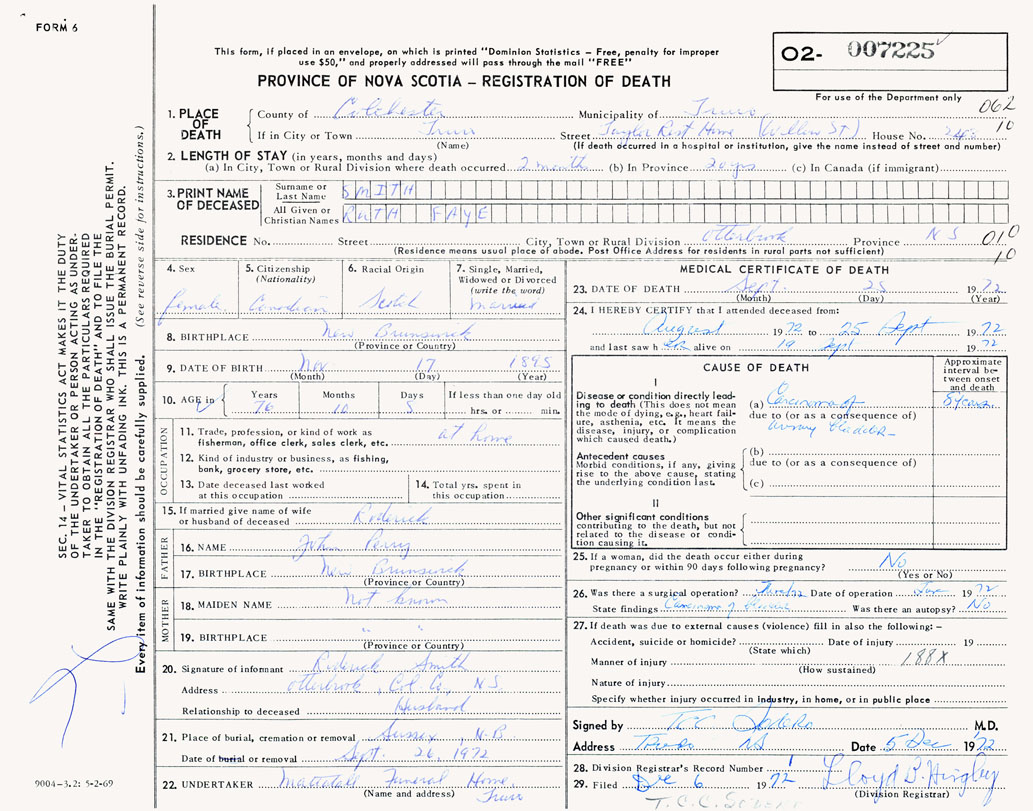 FORM 6
This form, if placed in an envelope, on which is printed "Dominion Statistics – Free, penalty for improper
use $50," and properly addressed will pass through the mail "FREE"
PROVINCE OF NOVA SCOTIA – REGISTRATION OF DEATH
O2- 007225
For use of the Department only
062
10
SEC. 14 – VITAL STATISTICS ACT MAKES IT THE DUTY
OF THE UNDERTAKER OR PERSON ACTING AS UNDER-
TAKER TO OBTAIN ALL THE PARTICULARS REQUIRED
IN THE "REGISTRATION OF DEATH" AND TO FILE THE
SAME WITH THE DIVISION REGISTRAR WHO SHALL ISSUE THE BURIAL PERMIT.
WRITE PLAINLY WITH UNFADING INK. THIS IS A PERMANENT RECORD.
Every item of information should be carefully supplied. (See reverse side for instructions.)
1. PLACE OF DEATH
County of Colchester Municipality of Truro
If in City or Town Truro Street Rest Home (Willow St.) House No.
(Name) (If death occurred in a hospital or institution, give the name instead of street and number)
2. LENGTH OF STAY (in years, months and days)
(a) In City, Town or Rural Division where death occurred 2 month (b) In Province 20 yrs (c) In Canada (if immigrant)
3. PRINT NAME OF DECEASED
Surname or Last Name SMITH
All Given or Christian Names RUTH FAYE
RESIDENCE No. Street City, Town or Rural Division Otterbrook Province NS
(Residence means usual place of abode. Post Office Address for residents in rural parts not sufficient)
010
10
4. Sex female
5. Citizenship (Nationality) Canadian
6. Racial Origin Scotch
7. Single, Married, Widowed or Divorced (write the word) Married
8. BIRTHPLACE New Brunswick
(Province or Country)
9. DATE OF BIRTH Nov 17 1895
(Month) (Day) (Year)
10. AGE in Years 76 Months 10 Days 5 If less than one day old hrs. or min.
OCCUPATION
11. Trade, profession, or kind of work as fisherman, office clerk, sales clerk, etc. at home
12. Kind of industry or business, as fishing, bank, grocery store, etc.
13. Date deceased last worked at this occupation
14. Total yrs. spent in this occupation
15. If married give name of wife or husband of deceased Roderick
FATHER
16. NAME John Perry
17. BIRTHPLACE New Brunswick
(Province or Country)
MOTHER
18. MAIDEN NAME Not known
19. BIRTHPLACE " "
(Province or Country)
20. Signature of informant Roderick Smith
Address Otterbrook, Col Co, N.S.
Relationship to deceased Husband
21. Place of burial, cremation or removal Sussex, N.B
Date of burial or removal Sept. 26, 1972
22. UNDERTAKER Mattatall Funeral Home
(Name and address) Truro
9004-3.2: 5-2-69
MEDICAL CERTIFICATE OF DEATH
23. DATE OF DEATH Sept. 25 1972
(Month) (Day) (Year)
24. I HEREBY CERTIFY that I attended deceased from:
August 1972 to 25 Sept 1972
and last saw her alive on 19 Sept 1972
CAUSE OF DEATH
Approximate interval between onset and death
I
Disease or condition directly leading to death (This does not mean the mode of dying, e.g., heart failure, asthenia, etc. It means the disease, injury, or complication which caused death.)
(a) Carcinoma of
due to (or as a consequence of)
bladder
years
Antecedent causes
Morbid conditions, if any, giving rise to the above cause, stating the underlying condition last.
(b)
due to (or as a consequence of)
(c)
II
Other significant conditions contributing to the death, but not related to the disease or condition causing it.
25. If a woman, did the death occur either during pregnancy or within 90 days following pregnancy? No
(Yes or No)
26. Was there a surgical operation? Date of operation 1972
State findings Carcinoma of Was there an autopsy? No
27. If death was due to external causes (violence) fill in also the following: –
Accident, suicide or homicide? Date of injury 19
(State which)
Manner of injury 188X
(How sustained)
Nature of injury
Specify whether injury occurred in industry, in home, or in public place
Signed by M.D.
Address Truro NS Date 5 Dec 1972
28. Division Registrar's Record Number 1
29. Filed Dec 6 1972 Lloyd B. Hingley
(Division Registrar)